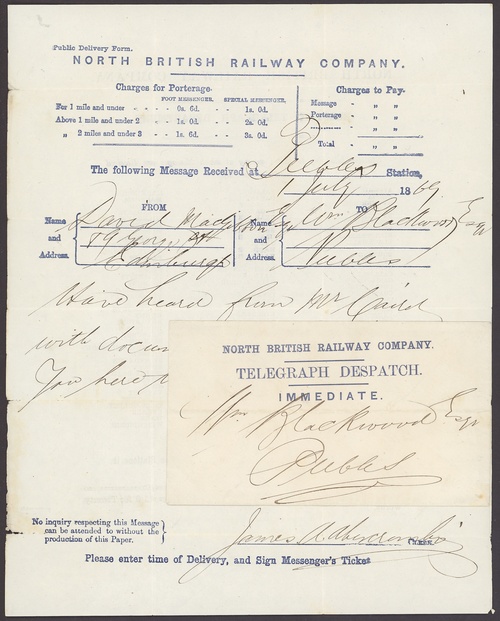 Public Delivery Form.
NORTH BRITISH RAILWAY COMPANY.
Charges for Porterage.
FOOT MESSENGER, SPECIAL MESSENGER,
For 1 mile and under - - - - 0s. 6d. - - 1s. 0d.
Above 1 mile and under 2 - - 1s. 0d. - - 2s. 0d.
„ 2 miles and under 3 - - 1s. 6d. - - 3s. 0d.
Charges to Pay.
Message - „ „
Porterage - „ „
- „ „
- „ „
Total - „ „
The following Message Received at Peebles Station,
1 July 1869
FROM
Name and Address.
David
Edinburgh
TO
Name and Address.
Wm Blackwood Esqr
Peebles
Have heard from Mr Caird
with docum
You here
NORTH BRITISH RAILWAY COMPANY.
TELEGRAPH DESPATCH.
IMMEDIATE.
Wm Blackwood Esqr
Peebles
No inquiry respecting this Message
can be attended to without the
production of this Paper.
James A. Abercrombie
Please enter time of Delivery, and Sign Messenger's Ticket